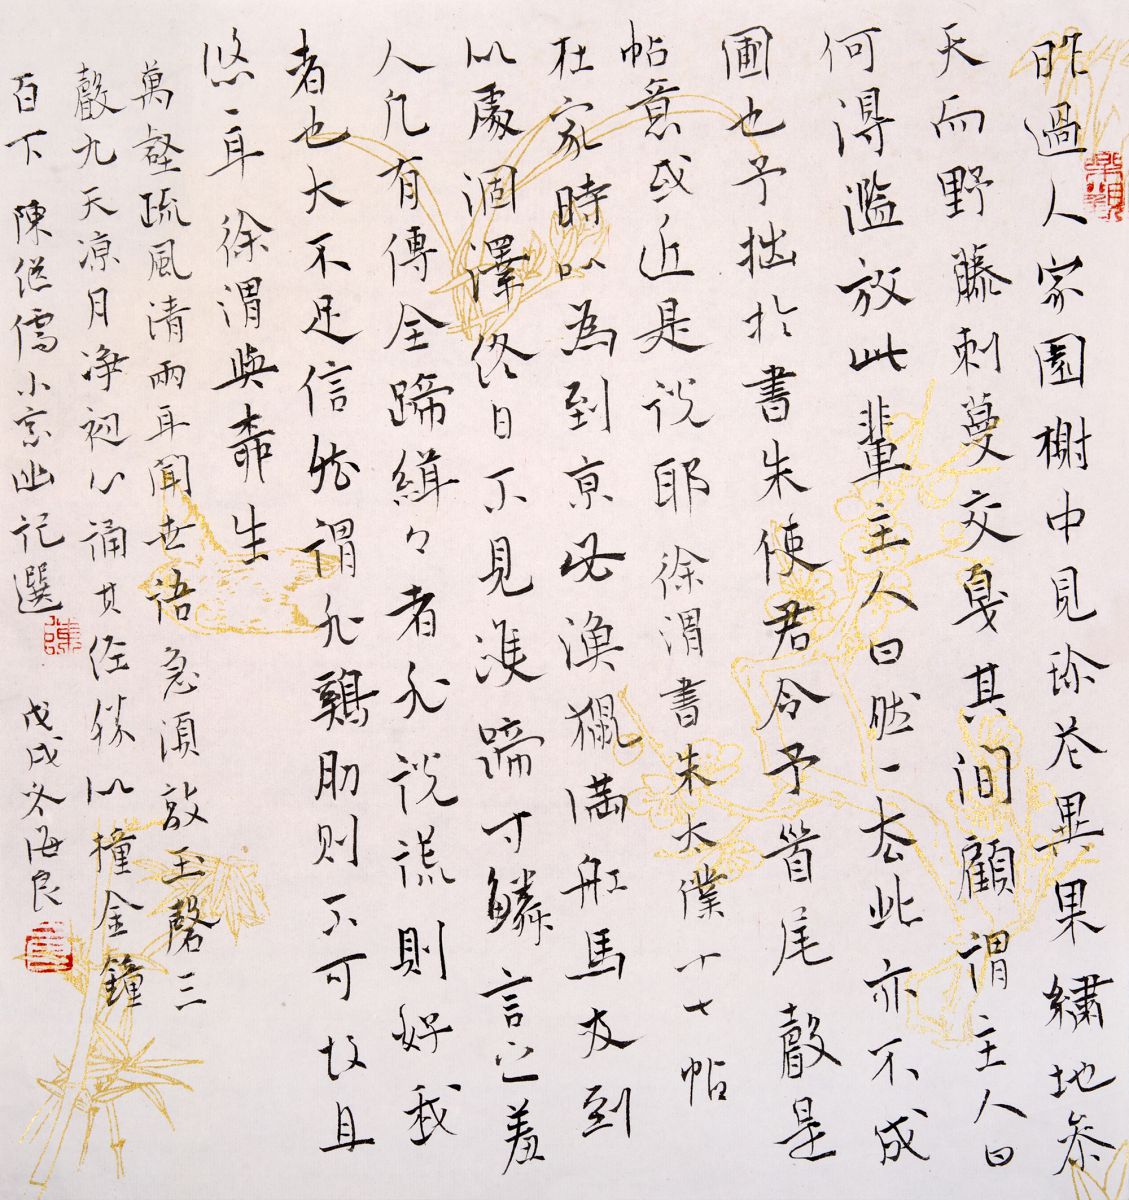 昨過人家園榭中見珍花異果繡地參
天而野藤刺蔓交戛其間顧謂主人曰
何得濫放此輩主人曰然然去此亦不成
圃也予拙於書朱使君令予首尾聲是
帖意或近是說耶 徐渭書朱太僕十七帖
在家時以為到京必漁獵滿船馬及到
似處涸澤終日不見隻蹄寸鱗言之羞
人凡有傳筌蹄緝緝者非說謊則好我
者也大不足信然謂非雞肋則不可故且
悠悠耳 徐渭與柳生
萬壑疏風清兩耳聞世語急須敲玉磬三
聲九天涼月淨初心誦其經勝似撞金鐘
百下 陳繼儒小窗幽記選
戊戌冬海良